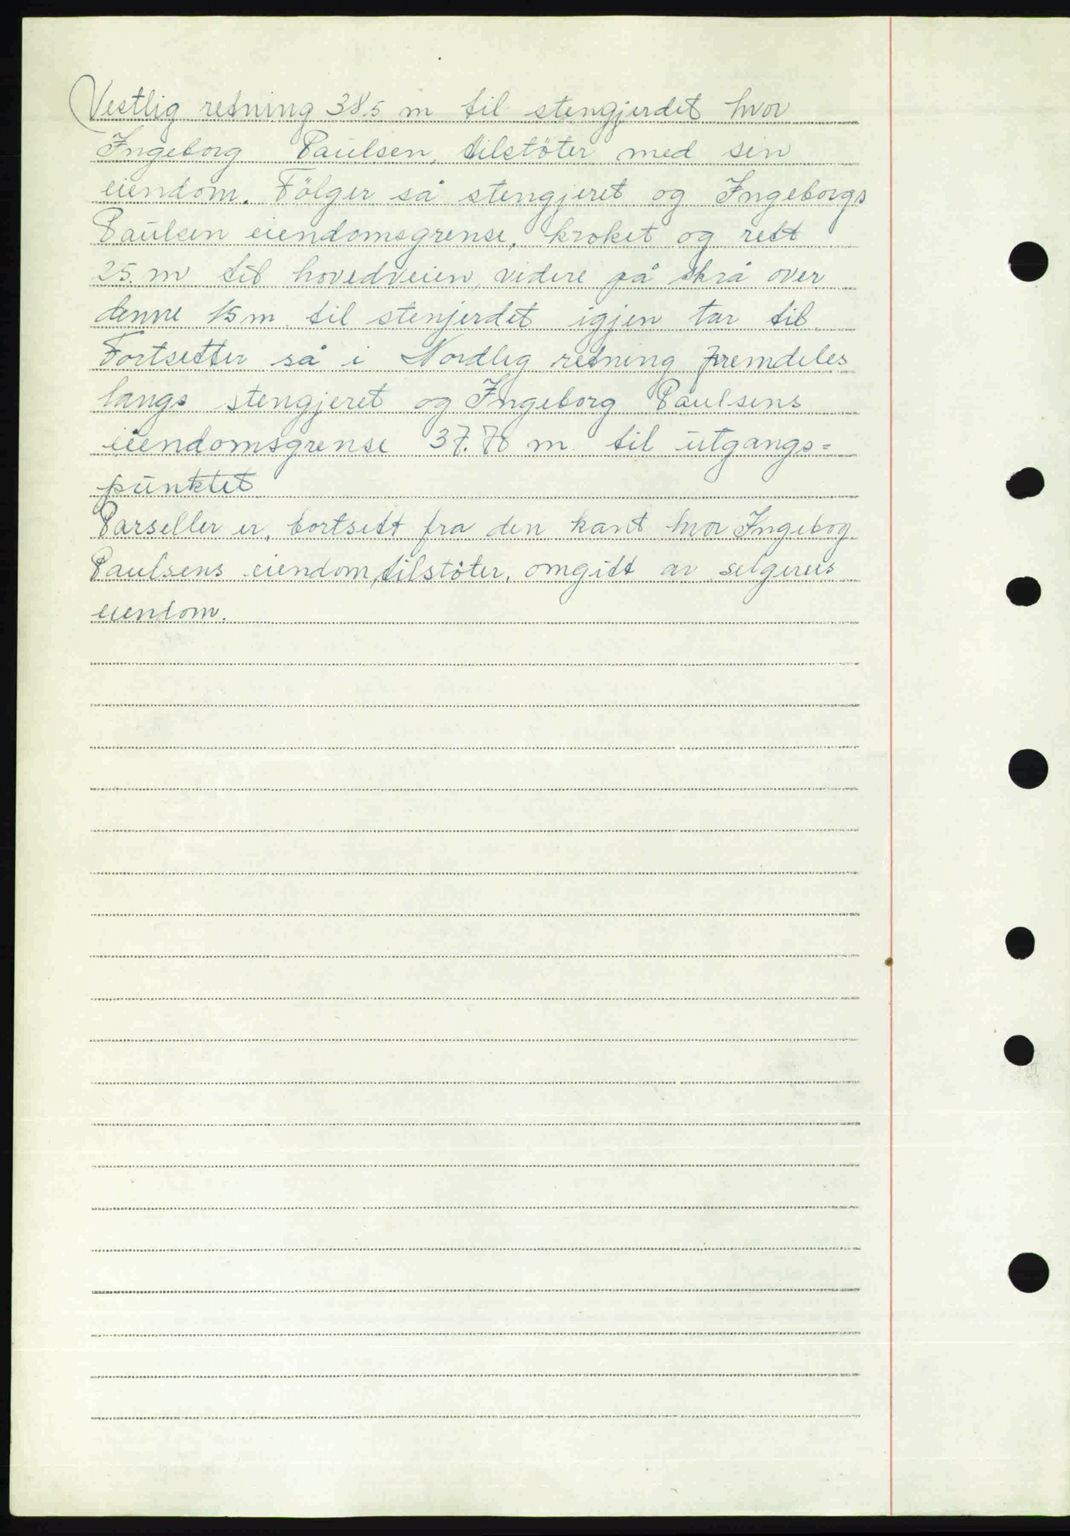 Vestlig retning 38,5 m til stengjerdet hvor
Ingeborg Paulsen, tilstöter med sin
eiendom. Fölger så stengjeret og Ingeborgs
Paulsen eiendomsgrense, kroket og rett
25. m til hovedveien, videre på skrå over
denne 15 m til stenjerdet igjen tar til.
Fortsetter så i Nordlig retning fremdeles
langs stengjeret og Ingeborg Paulsens
eiendomsgrense 37.70 m til utgangs=
punktet
Parseller er, bortsett fra den kant hvor Ingebog
Paulsens eiendom, tilstöter, omgitt av selgerens
eiendom.